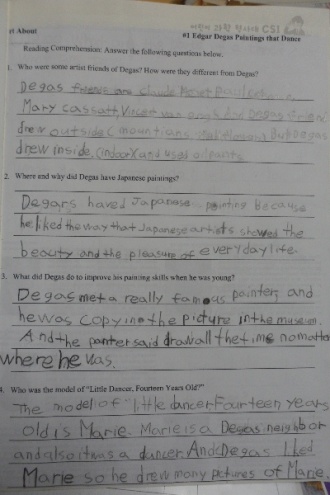 어린이 과학 형사대 CSI
rt About
#1 Edgar Degas Paintings that Dance
Reading Comprehension: Answer the following questions below.
1. Who were some artist friends of Degas? How were they different from Degas?
Degas friends are claude Monet
Mary cassatt Vincent van gogh
drew outside (mountians and But Degas
drew inside. (indoor) and used oil paints
2. Where and why did Degas have Japanese paintings?
Degars haved Japanese painting Because
he liked the way that Japanese artists showed the
beauty and the pleasure of everyday life.
3. What did Degas do to improve his painting skills when he was young?
Degas met a really famous painter, and
he was copying the picture in the museum.
And the painter said draw all the time no matter
where he was.
4. Who was the model of "Little Dancer, Fourteen Years Old?"
The model of "little dancer Fourteen years
old is Marie. Marie is a Degas neighbor
and also it was a dancer. And Degas liked
Marie so he drew many pictures of Marie.